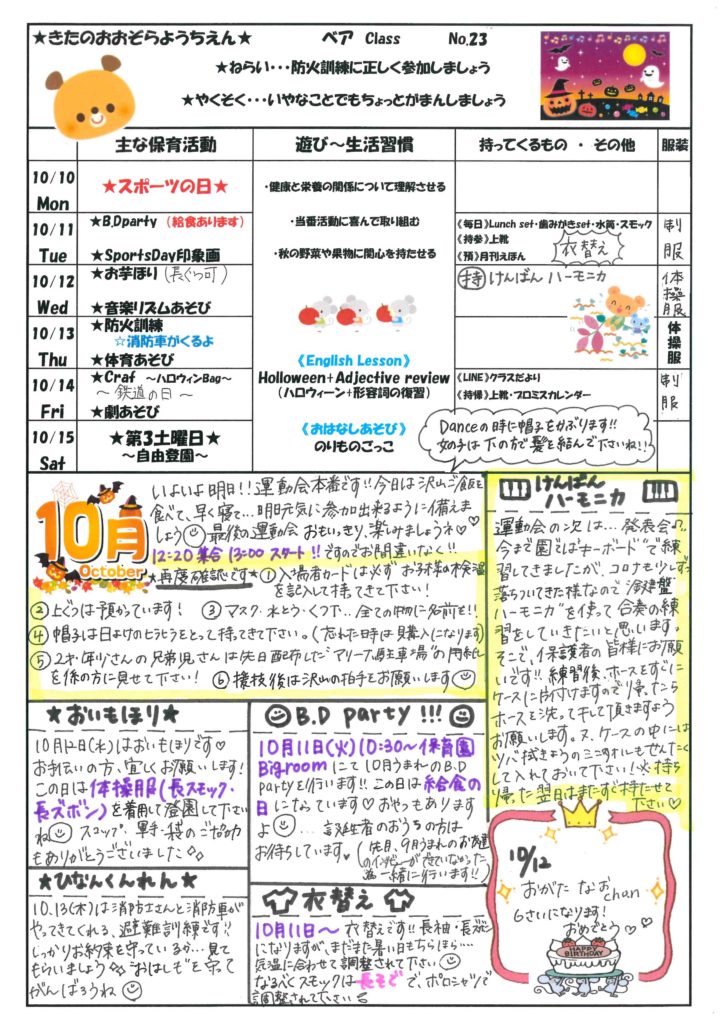 ★きたのおおぞらようちえん★ ベア Class No.23
★ねらい・・・防火訓練に正しく参加しましょう
★やくそく・・・いやなことでもちょっとがまんしましょう
主な保育活動 遊び～生活習慣 持ってくるもの ・ その他 服装
10/10 Mon
★スポーツの日★
10/11 Tue
★B,Dparty (給食あります)
★SportsDay印象画
10/12 Wed
★お芋ほり (長ぐつ可)
★音楽リズムあそび
10/13 Thu
★防火訓練
☆消防車がくるよ
★体育あそび
10/14 Fri
★Craf ～ハロウィンBag～
～鉄道の日～
★劇あそび
10/15 Sat
★第3土曜日★
～自由登園～
・健康と栄養の関係について理解させる
・当番活動に喜んで取り組む
・秋の野菜や果物に関心を持たせる
《English Lesson》
Holloween+Adjective review
(ハロウィーン+形容詞の復習)
《おはなしあそび》
のりものごっこ
《毎日》Lunch set・歯みがきset・水筒・スモック
《持参》上靴
《預》月刊えほん
衣替え
制服
持 けんばん ハーモニカ
体操服
体操服
《LINE》クラスだより
《持帰》上靴・プロミスカレンダー
制服
Danceの時に帽子をかぶります!!
女の子は下の方で髪を結んで下さいね!!
10月
October
いよいよ明日!!運動会本番です!!今日は沢山ご飯を
食べて、早く寝て…明日元気に参加出来るように備えま
しょう 最後の運動会 おもいっきり、楽しみましょうネ♡
12:20 集合 13:00 スタート!!ですのでお間違いなく!!
★再度確認です★ ①入場者カードは必ず お子様の検温
を記入して持てきて下さい!
②上ぐつは預かっています! ③マスク・水とう・くつ下…全ての物に名前を!!
④帽子は日よけのヒラヒラをとって持ってきて下さい。(忘れた時は購入になります)
⑤2才・年少さんの兄弟児さんは先日配布した"アリーナ駐車場"の用紙
を係の方に見せて下さい! ⑥接技後は沢山の拍手をお願いします
けんばん
ハーモニカ
運動会の次は…発表会♪
今まで園では"キーボード"で練
習してきましたが、コロナも少しずつ
落ちついてきた様なので"鍵盤
ハーモニカ"を使って合奏の練
習をしていきたいと思います。
そこで、保護者の皆様にお願
いです!!練習後、ホースをすぐに
ケースに片付けますので帰ったら
ホースを洗って干して頂きますよう
お願いします。又、ケースの中には
ツバ拭きようのミニタオルもせんたく
して入れておいて下さい!※持ち
帰った翌日はまたすぐ持たせて
下さい♡
★おいもほり★
10月12日(水)はおいもほりです♡
お手伝いの方、宜しくお願いします!
この日は体操服(長スモック・
長ズボン)を着用して登園して下さい
ね スコップ、軍手、袋のご協力
もありがとうございました
★ひなんくんれん★
10.13(木)は消防士さんと消防車が
やってきてくれる、避難訓練です!!
しっかりお約束を守っているか…見て
もらいましょう "おはしも"を守って
がんばろうね
B.D party !!!
10月11日(火)10:30～保育園
Bigroomにて10月うまれのB.D
partyを行います!!この日は給食の
日になっています♡おやつもあります
よ …誕生者のおうちの方は
お待ちしています。
(先月、9月うまれのお友達
のインタビューができていなかった
為一緒に行います!!)
衣替え
10月11日～ 衣替えです!!長袖・長ズボン
になりますが、まだまだ暑い日もちらほら…
気温に合わせて調整されて下さい
なるべくスモックは長そでで、ポロシャツで
調整されて下さい
10/12
おがた なおchan
6さいになります!
おめでとう♡
HAPPY
BIRTHDAY